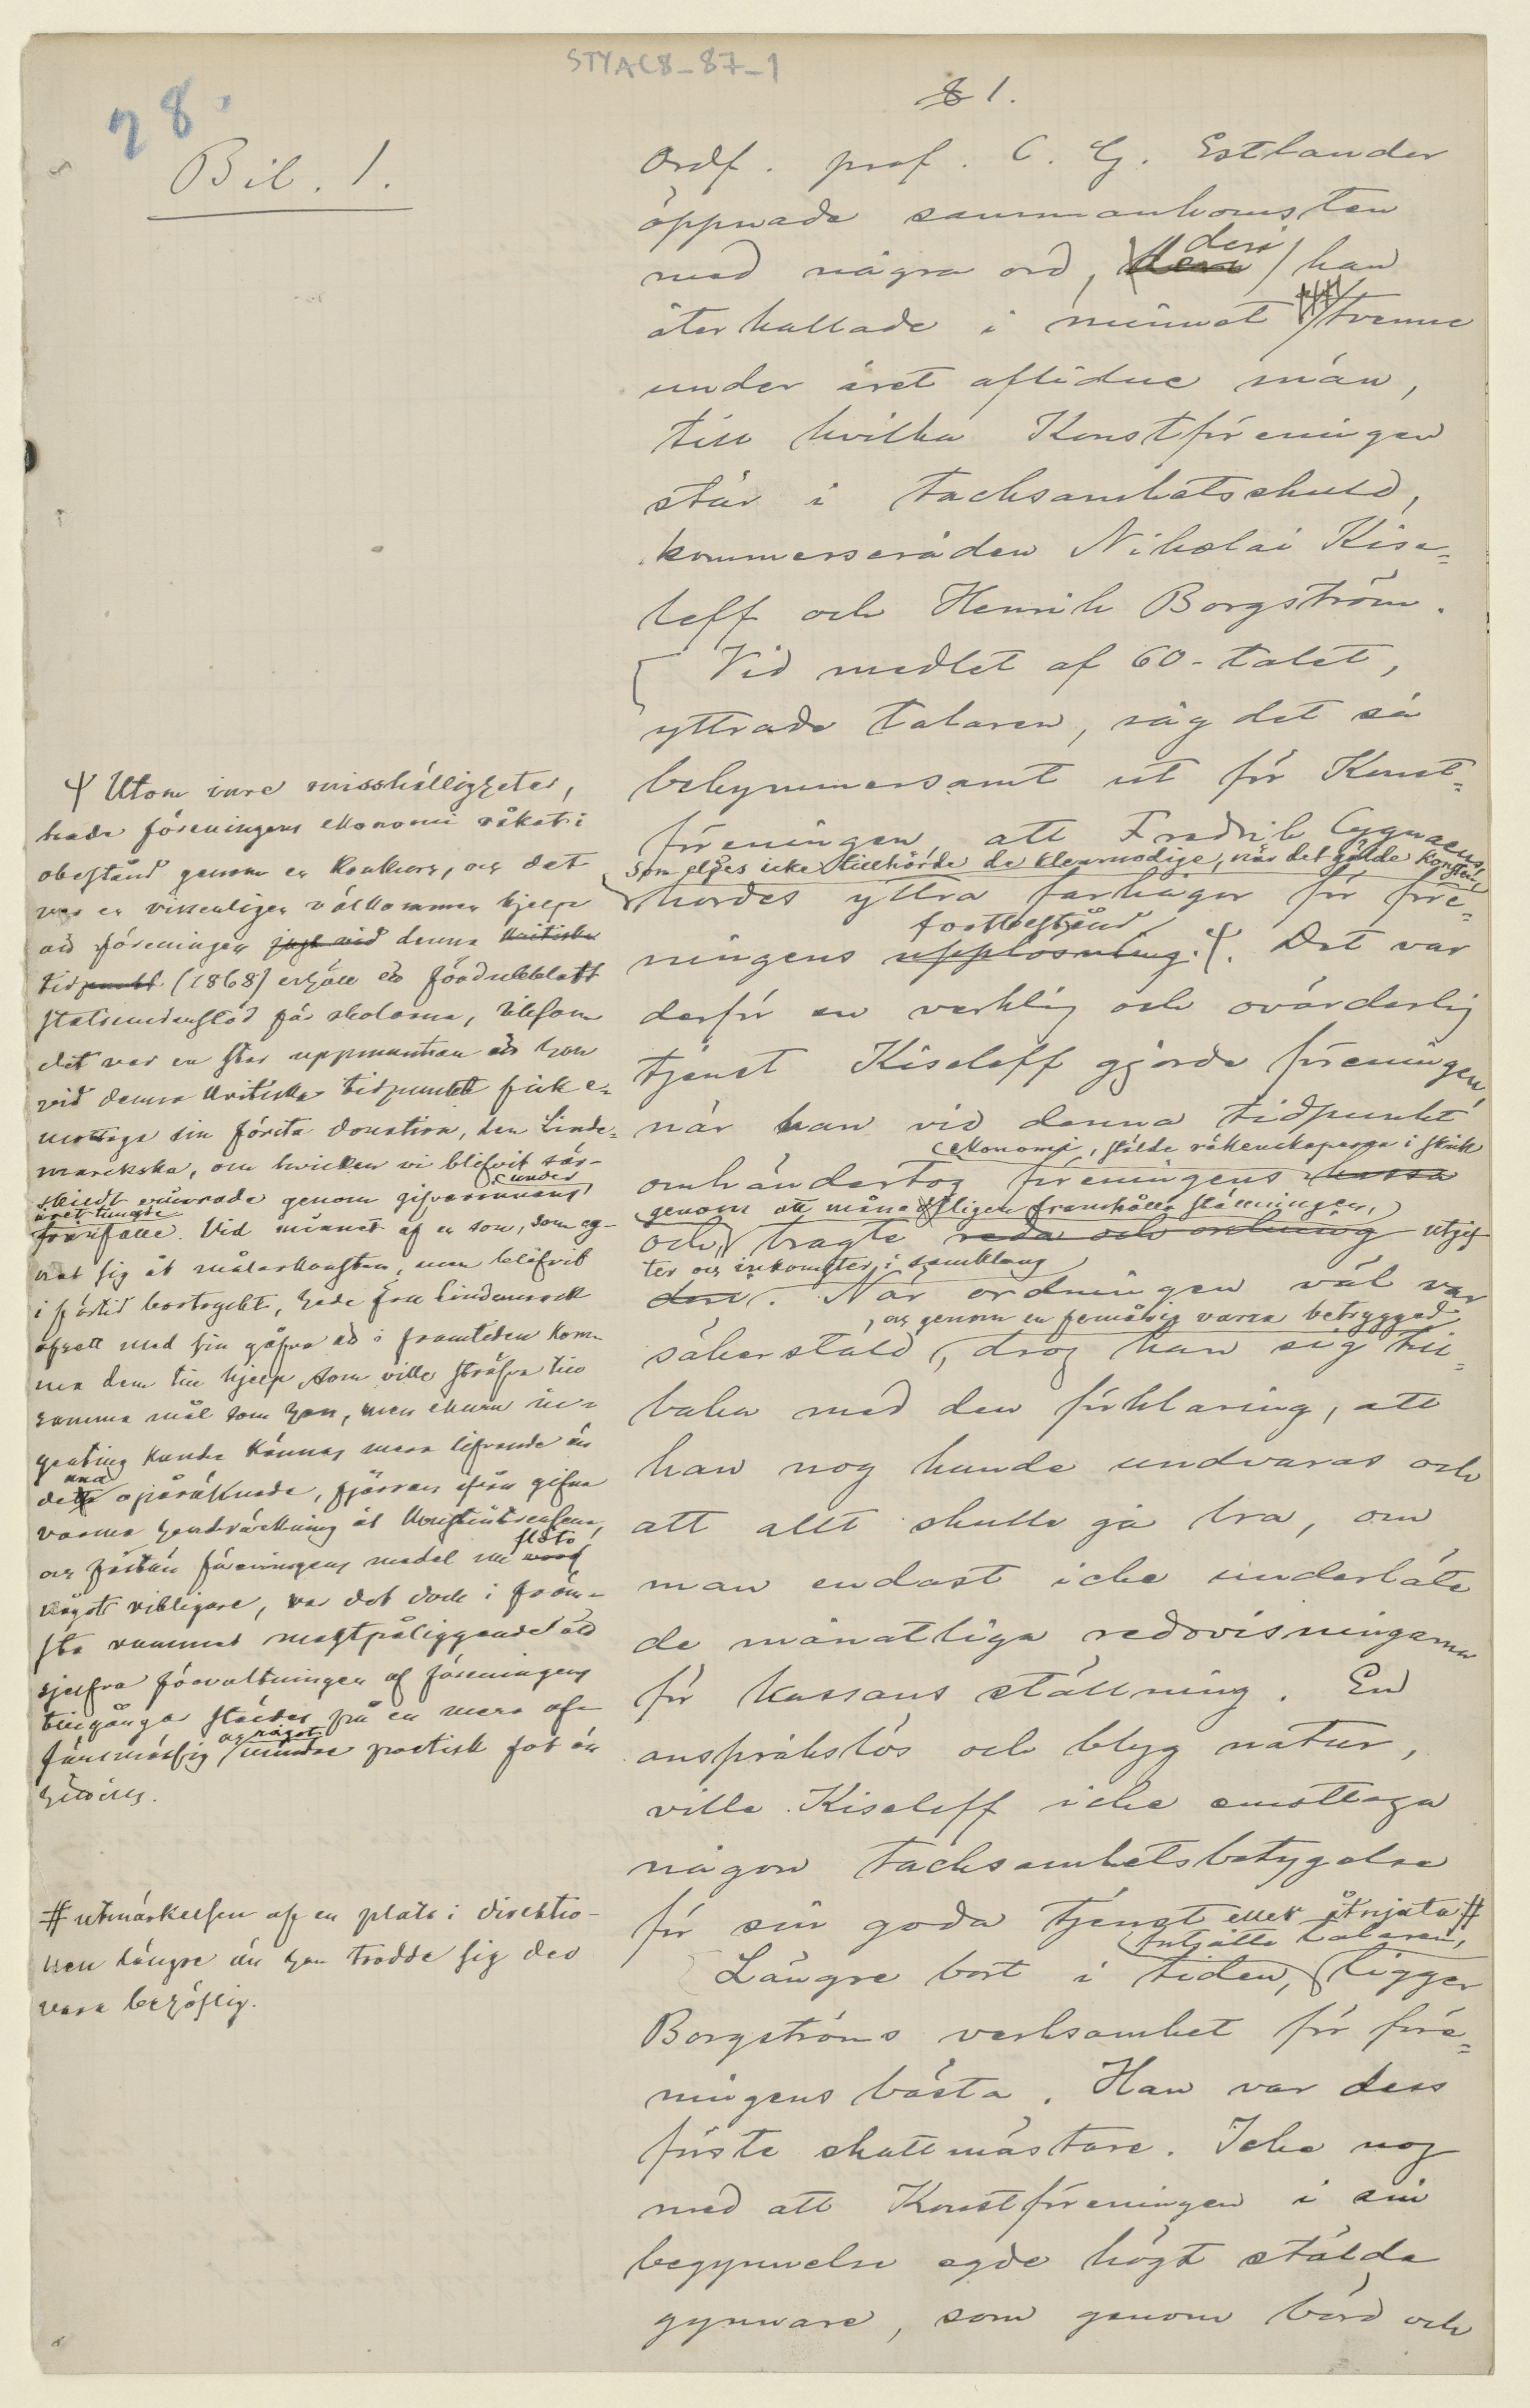 STYAC8_87_1
28.
8 1.
Bil. 1.
Ordf. prof. C. G. Estlander
öppnade sammankomsten
med några ord, deri han
återkallade i minnet tvenne
under året aflidne män,
till hvilka Konstföreningen
står i tacksamhetsskuld,
kommerseråden Nikolai Kise=
leff och Henrik Borgström.
Vid medlet af 60-talet,
yttrade talaren, såg det så
bekymmersamt ut för Konst=
föreningen att Fredrik Cygnaeus,
som eljes icke tillhörde de klenmodige, när det gälde konsten,
hördes yttra farhågor för före=
fortbestånd
ningens upplösning. Ψ. Det var
derför en verklig och ovärderlig
tjenst Kiseleff gjorde föreningen,
när han vid denna tidpunkt
ekonomi, stälde räkenskaperna i skick
omhändertog föreningens kassa
genom att månatligen framhålla ställningen,
och bragte reda och ordning utgif
ter och inkomster i samklang
deri. När ordningen väl var
, och genom en femårig vana betryggad
säkerstäld, drog han sig till=
baka med den förklaring, att
han nog kunde undvaras och
att allt skulle gå bra, om
man endast icke underläte
de månatliga redovisningarna
för kassans ställning. En
anspråkslös och blyg natur,
ville Kiseleff icke emottaga
någon tacksamhetsbetygelse
för sin goda tjenst eller åtnjuta #
fortsatte talaren,
Längre bort i tiden, ligger
Borgströms verksamhet för före=
ningens bästa. Han var dess
förste skattmästare. Icke nog
med att Konstföreningen i sin
begynnelse egde högt stälda
gynnare, som genom börd och
Ψ Utom inre misshälligheter,
hade föreningens ekonomi råkat i
obestånd genom en konkurs, och det
var en visserligen välkommen hjelp
att föreningen just vid denna kritiska
tidpunkt (1868) erhöll ett fördubbladt
statsunderstöd för skolorna, liksom
det var en stor uppmuntran att hon
vid denna kritiska tidpunkt fick e=
mottaga sin första donation, den Linde=
marckska, om hvilken vi blifvit sär-
under
skildt erinrade genom gifvarinnans
året timade
frånfälle. Vid minnet af en son, som eg-
nat sig åt målarkonsten, men blifvit
i förtid bortryckt, hade fru Lindemarck
afsett med sin gåfva att i framtiden kom-
ma dem till hjelp, som ville sträfva till
samma mål som han, men ehuru in-
genting kunde kännas mera lifvande än
nna
detta opåräknade, fjärran ifrån gifna
varma handräckning åt konststräfvena,
flöto
och förutan föreningens medel nu
något rikligare, var det dock i främ-
sta rummet magtpåliggande att
sjelfva förvaltningen af föreningens
tillgångar ställdes på en mera af-
och något
färsmässig mindre poetisk fot än
hittills.
# utmärkelsen af en plats i direktio-
nen längre än han trodde sig der
vara behöflig.